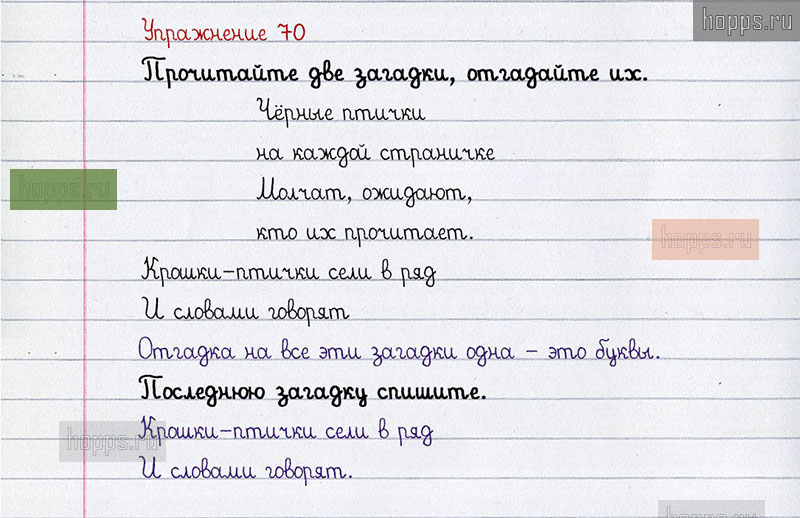 hopps.ru
Упражнение 70
Прочитайте две загадки, отгадайте их.
Чёрные птички
на каждой страничке
hopps.ru
Молчат, ожидают,
кто их прочитает.
hopps.ru
Крошки-птички сели в ряд
И словами говорят
Отгадка на все эти загадки одна – это буквы.
Последнюю загадку спишите.
Крошки-птички сели в ряд
hopps.ru
И словами говорят.
hopps.ru